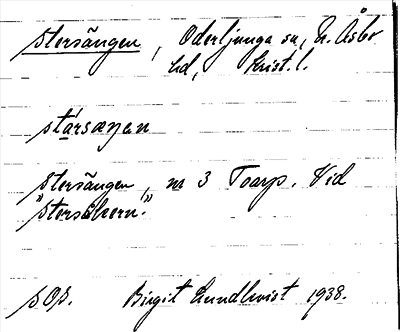 storsängen, Oderljunga sn, N. Åsbo
hd, Krist. l.
stårsæŋen
storsängen, nr 3 Toarp. Vid
"Storsåkern."
sOp. Birgit Lundkvist 1938.